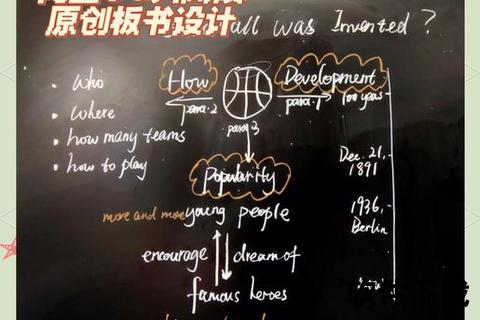 原创板书设计
all was Invented ?
• Who
• Where
• how many teams
• how to play
How
para.2
para.3
Development
para.1
100 years
Dec. 21, 1891
1936, Berlin
now
Popularity
more and more young people
encourage
dream of
famous heroes
软件下载